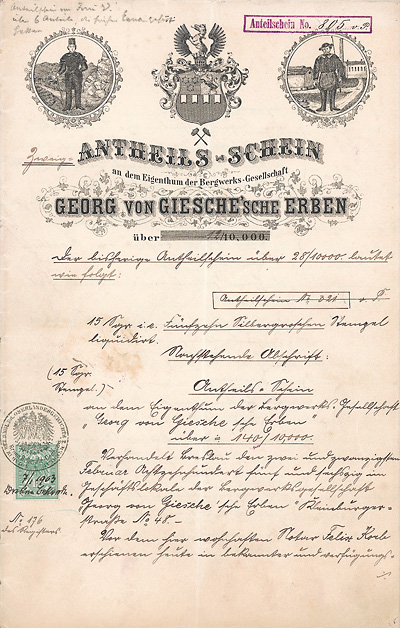 Antheilschein
über 6 Antheile
Antheilschein No. 805 v. P.
Zweig-
ANTHEILS-SCHEIN
an dem Eigenthum der Bergwerks-Gesellschaft
GEORG VON GIESCHE'SCHE ERBEN
über /10,000.
Der bisherige Antheilschein über 28/10000 lautet
wie folgt:
Antheilschein No 821. v. P
15 Sgr i. e. Fünfzehn Silbergroschen Stempel
liquidirt.
Nachstehende Abschrift:
(15 Sgr.
Stempel.)
Antheils-Schein
an dem Eigenthum der Bergwerks-Gesellschaft
"Georg von Giesche'sche Erben"
über 140/10000.
Verhandelt Breslau den zwei und zwanzigsten
Februar Achtzehnhundert fünf und sechszig im
Geschäftslokale der Bergwerksgesellschaft
"Georg von Giesche'sche Erben" Kleinburger-
straße No 48.-
Vor dem hier wohnhaften Notar Felix
erschienen heute in bekannter und verfügungs-
7/1.1903
No 176
des Registers